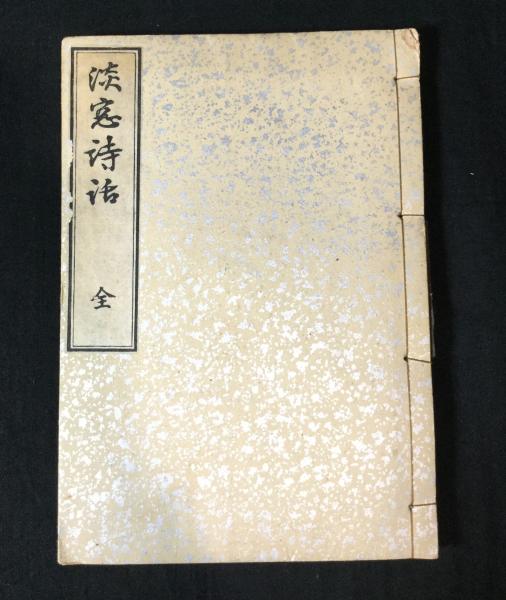 淡窓詩話
全